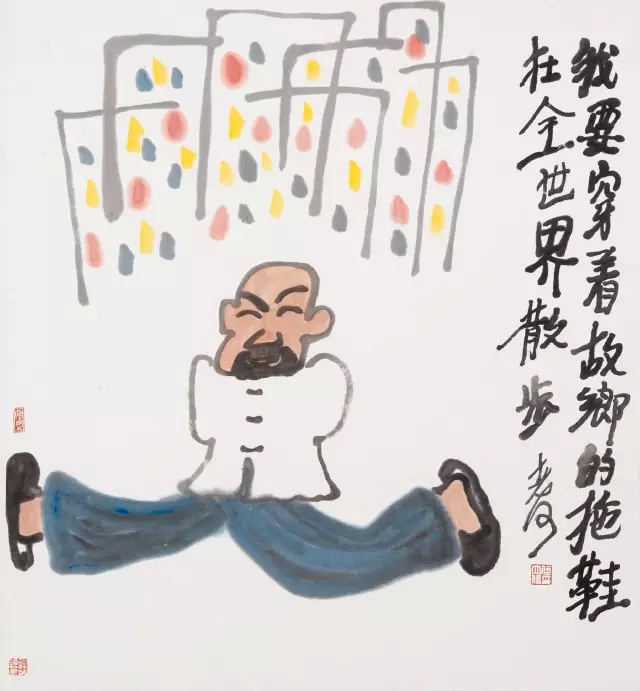 我要穿着故鄉的拖鞋
在全世界散步